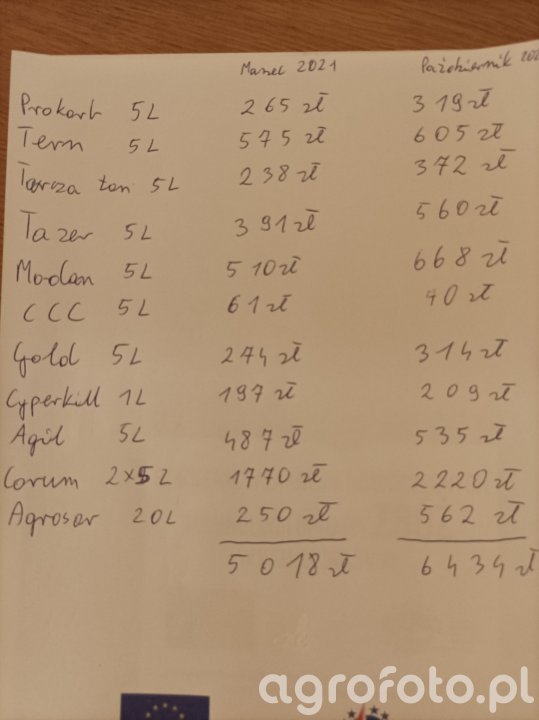 Marzec 2021 Październik 202
Prokarb 5L 265 zł 319 zł
Tern 5L 575 zł 605 zł
Tarcza łan 5L 238 zł 372 zł
Tazer 5L 391 zł 560 zł
Moddan 5L 510 zł 668 zł
CCC 5L 61 zł 40 zł
Gold 5L 274 zł 314 zł
Cyperkill 1L 197 zł 209 zł
Agil 5L 487 zł 535 zł
Corum 2x5L 1770 zł 2220 zł
Agrosar 20L 250 zł 562 zł
5018 zł 6434 zł
agrofoto.pl